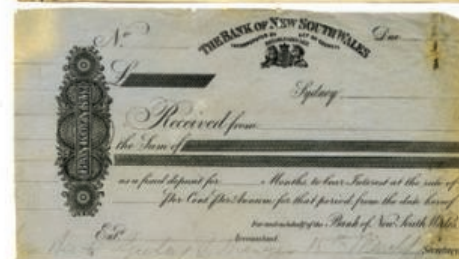 No
THE BANK OF NEW SOUTH WALES
Due
INCORPORATED BY ACT OF COUNCIL
£
Sydney
BANK OF N.S.W.
Received from
the Sum of
as a fixed deposit for Months to bear Interest at the rate of
Per Cent Per Annum for that period from the date hereof
For and on behalf of the Bank of New South Wales
Entd.
Accountant.
Secretary